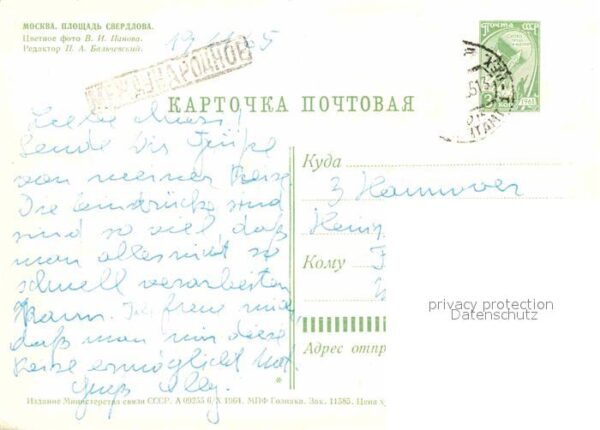 МОСКВА. ПЛОЩАДЬ СВЕРДЛОВА.
Цветное фото В. И. Панова.
Редактор П. А. Бальчевский.
МЕЖДУНАРОДНОЕ
ПОЧТА СССР
КАРТОЧКА ПОЧТОВАЯ
Liebe
Sende Dir Grüße
von meiner Reise
Die Eindrücke sind
sind so viel, daß
man alles nicht so
schnell verarbeiten
kann. Ich freue mich,
daß man mir diese
Reise ermöglicht hat.
Gruß
Куда
3 Hannover
Кому
privacy protection
Datenschutz
Адрес отпр
Издание Министерства связи СССР. А 09255 6/X 1964. МПФ Гознака. Зак. 11585. Цена